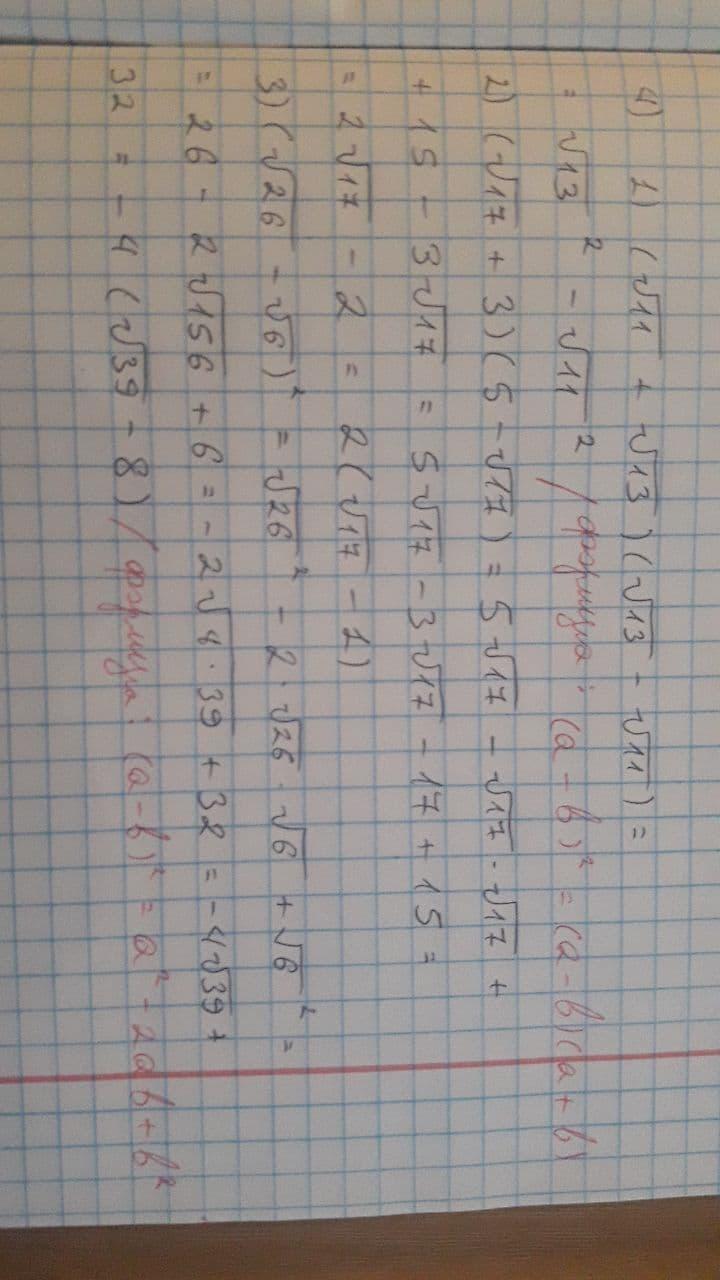 4) 1) (√11 + √13)(√13 - √11) =
= √13² - √11² / формула: (a - b)² = (a - b)(a + b)
2) (√17 + 3)(5 - √17) = 5√17 - √17·√17 +
+ 15 - 3√17 = 5√17 - 3√17 - 17 + 15 =
= 2√17 - 2 = 2(√17 - 1)
3) (√26 - √6)² = √26² - 2·√26·√6 + √6² =
= 26 - 2√156 + 6 = -2√4·39 + 32 = -4√39 +
32 = -4(√39 - 8) / формула: (a - b)² = a² - 2ab + b²